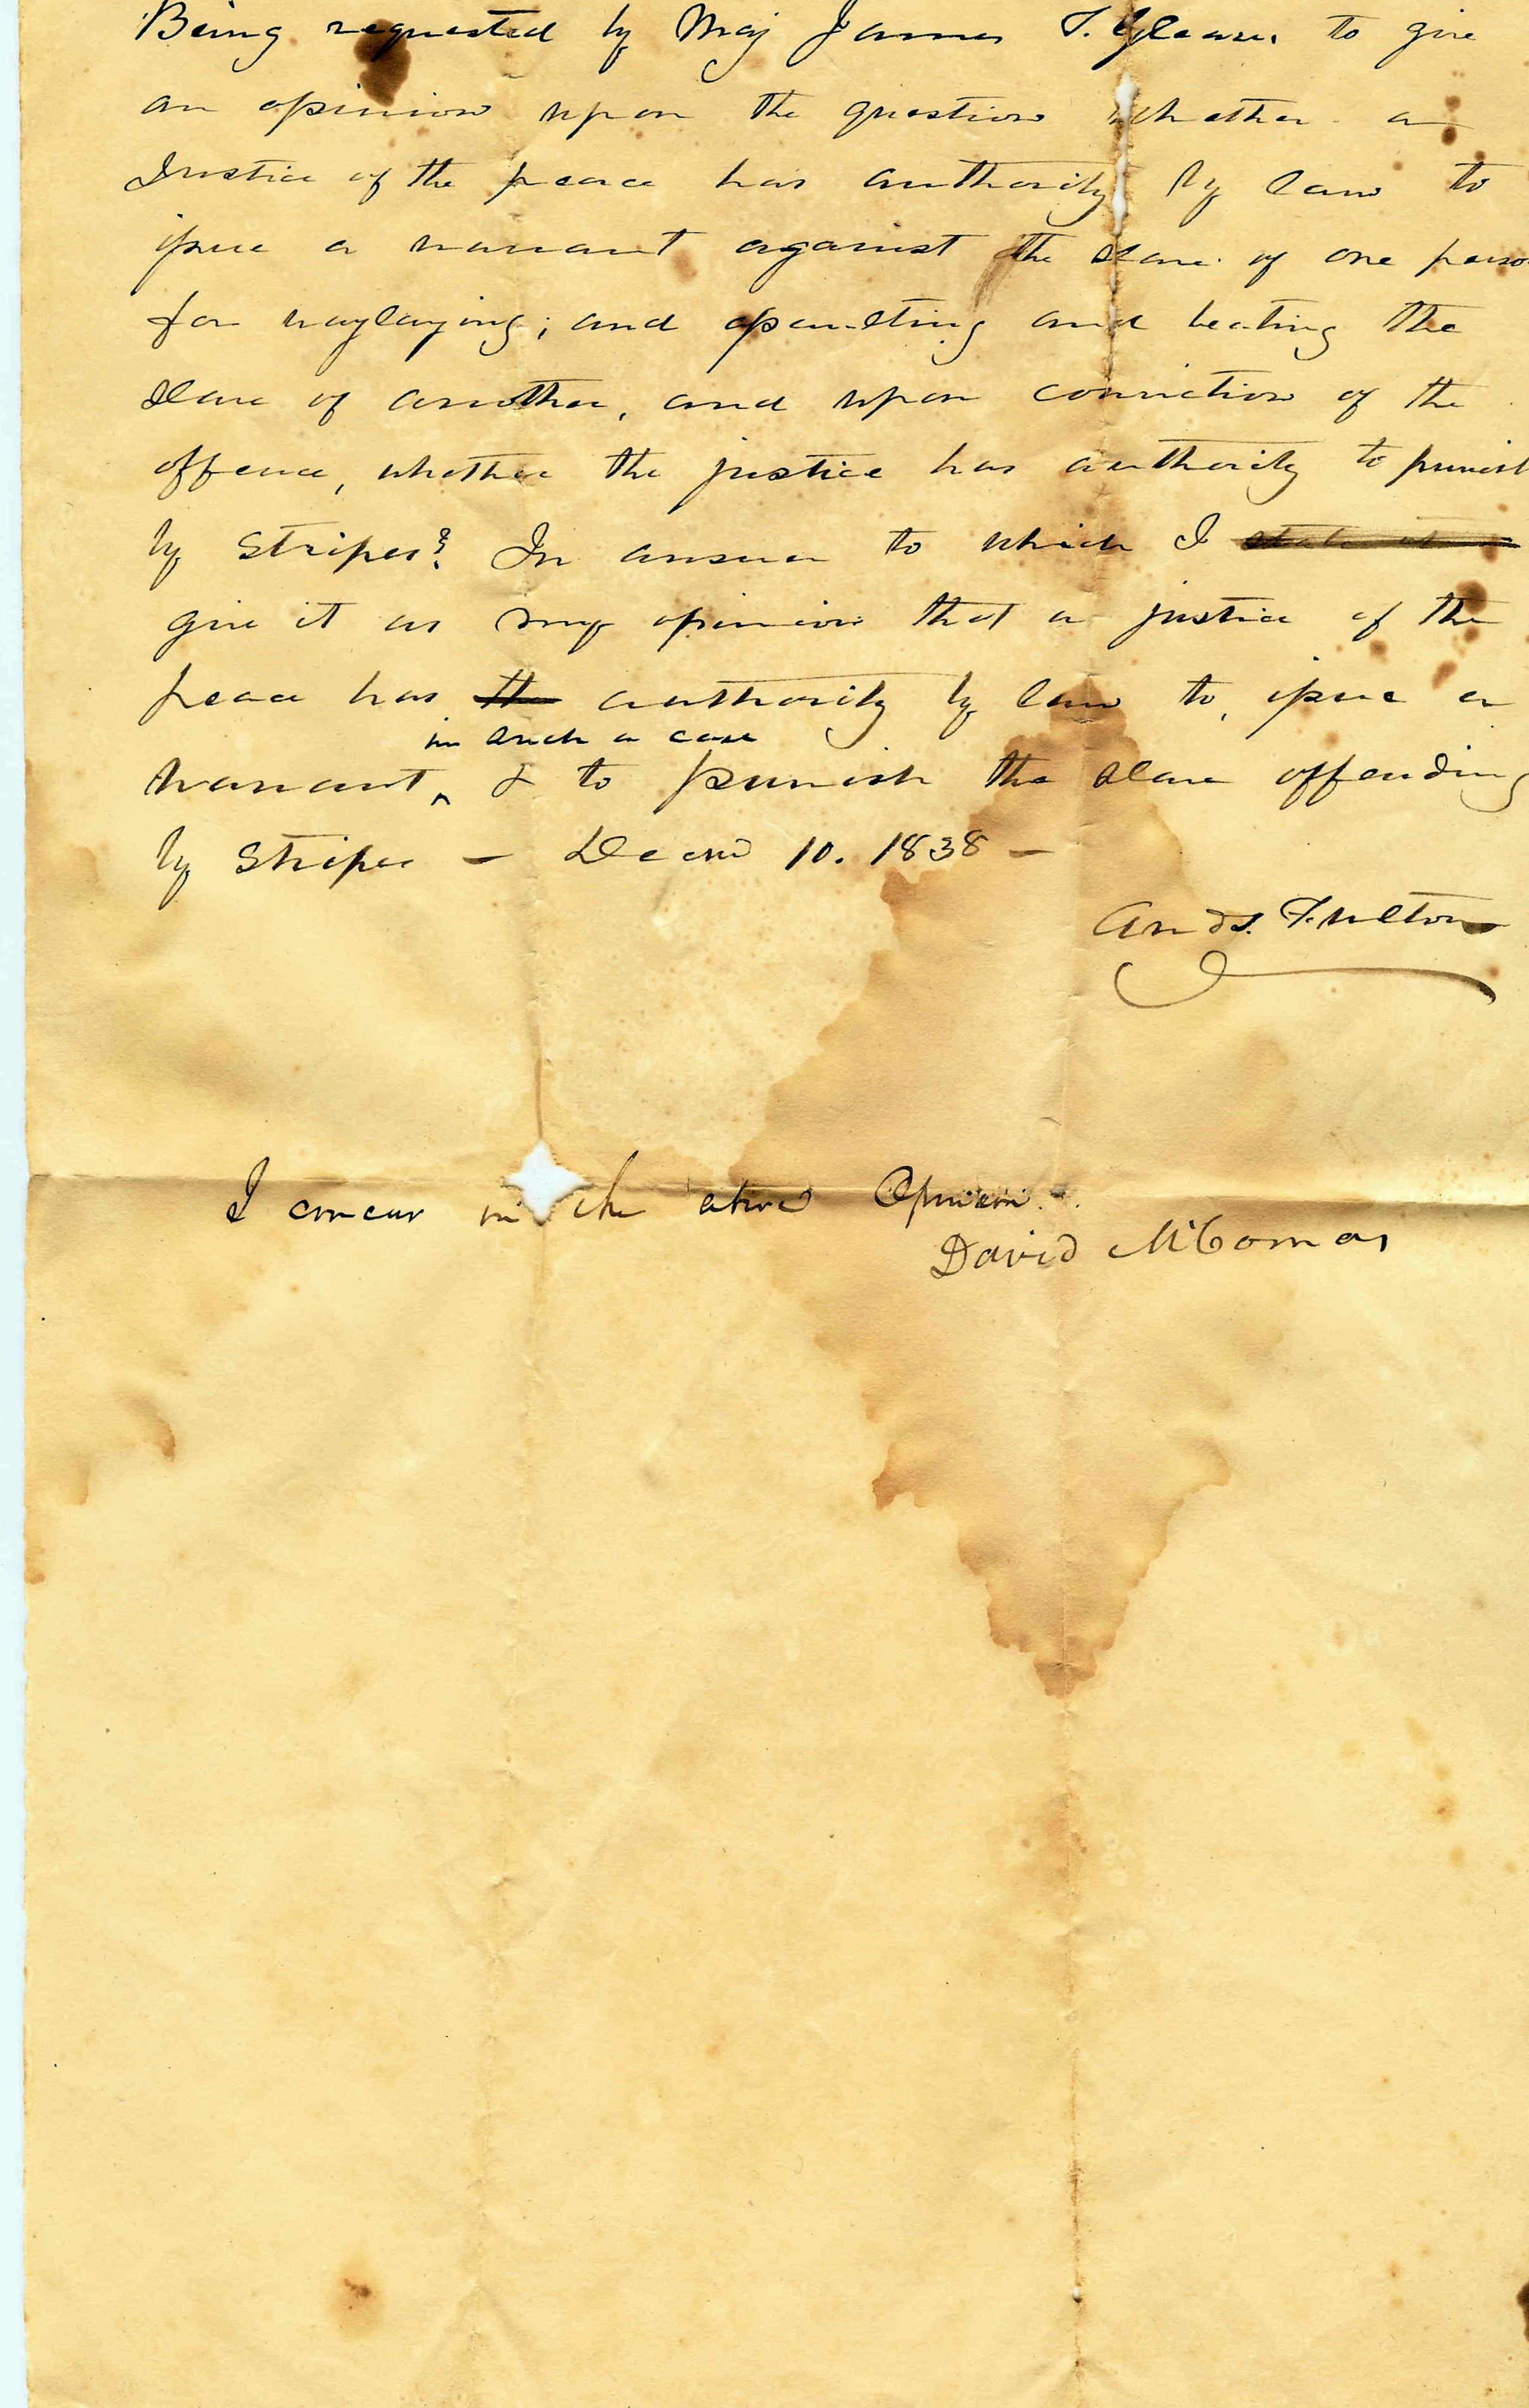 Being requested by Maj James T. Gleaves to give
an opinion upon the question whether a
Justice of the peace has authority by law to
issue a warrant against the slave of one perso
for waylaying; and assaulting and beating the
slave of another, and upon conviction of the
offence, whether the justice has authority to punish
by stripes? In answer to which I
give it as my opinion that a justice of the
peace has the authority by law to issue a
in such a case
warrant, & to punish the slave offending
by stripes – Decem 10. 1838 –
Andw. Fulton
I concur in the above Opinion.
David McComas